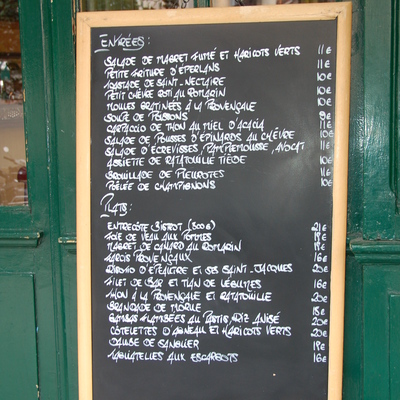 ENTRÉES :
SALADE DE MAGRET FUMÉ ET HARICOTS VERTS 11€
PETITE FRITURE D'ÉPERLANS 11€
TOASTADE DE SAINT-NECTAIRE 10€
PETIT CHÈVRE ROTI AU ROMARIN 10€
MOULES GRATINÉES À LA PROVENÇALE 10€
SOUPE DE POISSONS 9€
CARPACCIO DE THON AU MIEL D'ACACIA 11€
SALADE DE POUSSES D'ÉPINARDS AU CHÈVRE 10€
SALADE D'ÉCREVISSES PAMPLEMOUSSE, AVOCAT 11€
ASSIETTE DE RATATOUILLE TIÈDE 10€
BROUILLADE DE PLEUROTES 11€
POÊLÉE DE CHAMPIGNONS 10€
PLATS :
ENTRECÔTE BISTROT (300G) 21€
FOIE DE VEAU AUX POMMES 19€
MAGRET DE CANARD AU ROMARIN 19€
FARCIS PROVENÇAUX 16€
RISOTTO D'ÉPEAUTRE ET SES SAINT-JACQUES 20€
FILET DE BAR ET FLAN DE LÉGUMES 16€
THON À LA PROVENÇALE ET RATATOUILLE 20€
BRANDADE DE MORUE 18€
GAMBAS FLAMBÉES AU PASTIS, RIZ ANISÉ 20€
CÔTELETTES D'AGNEAU ET HARICOTS VERTS 20€
DAUBE DE SANGLIER 19€
TAGLIATELLES AUX ESCARGOTS 16€